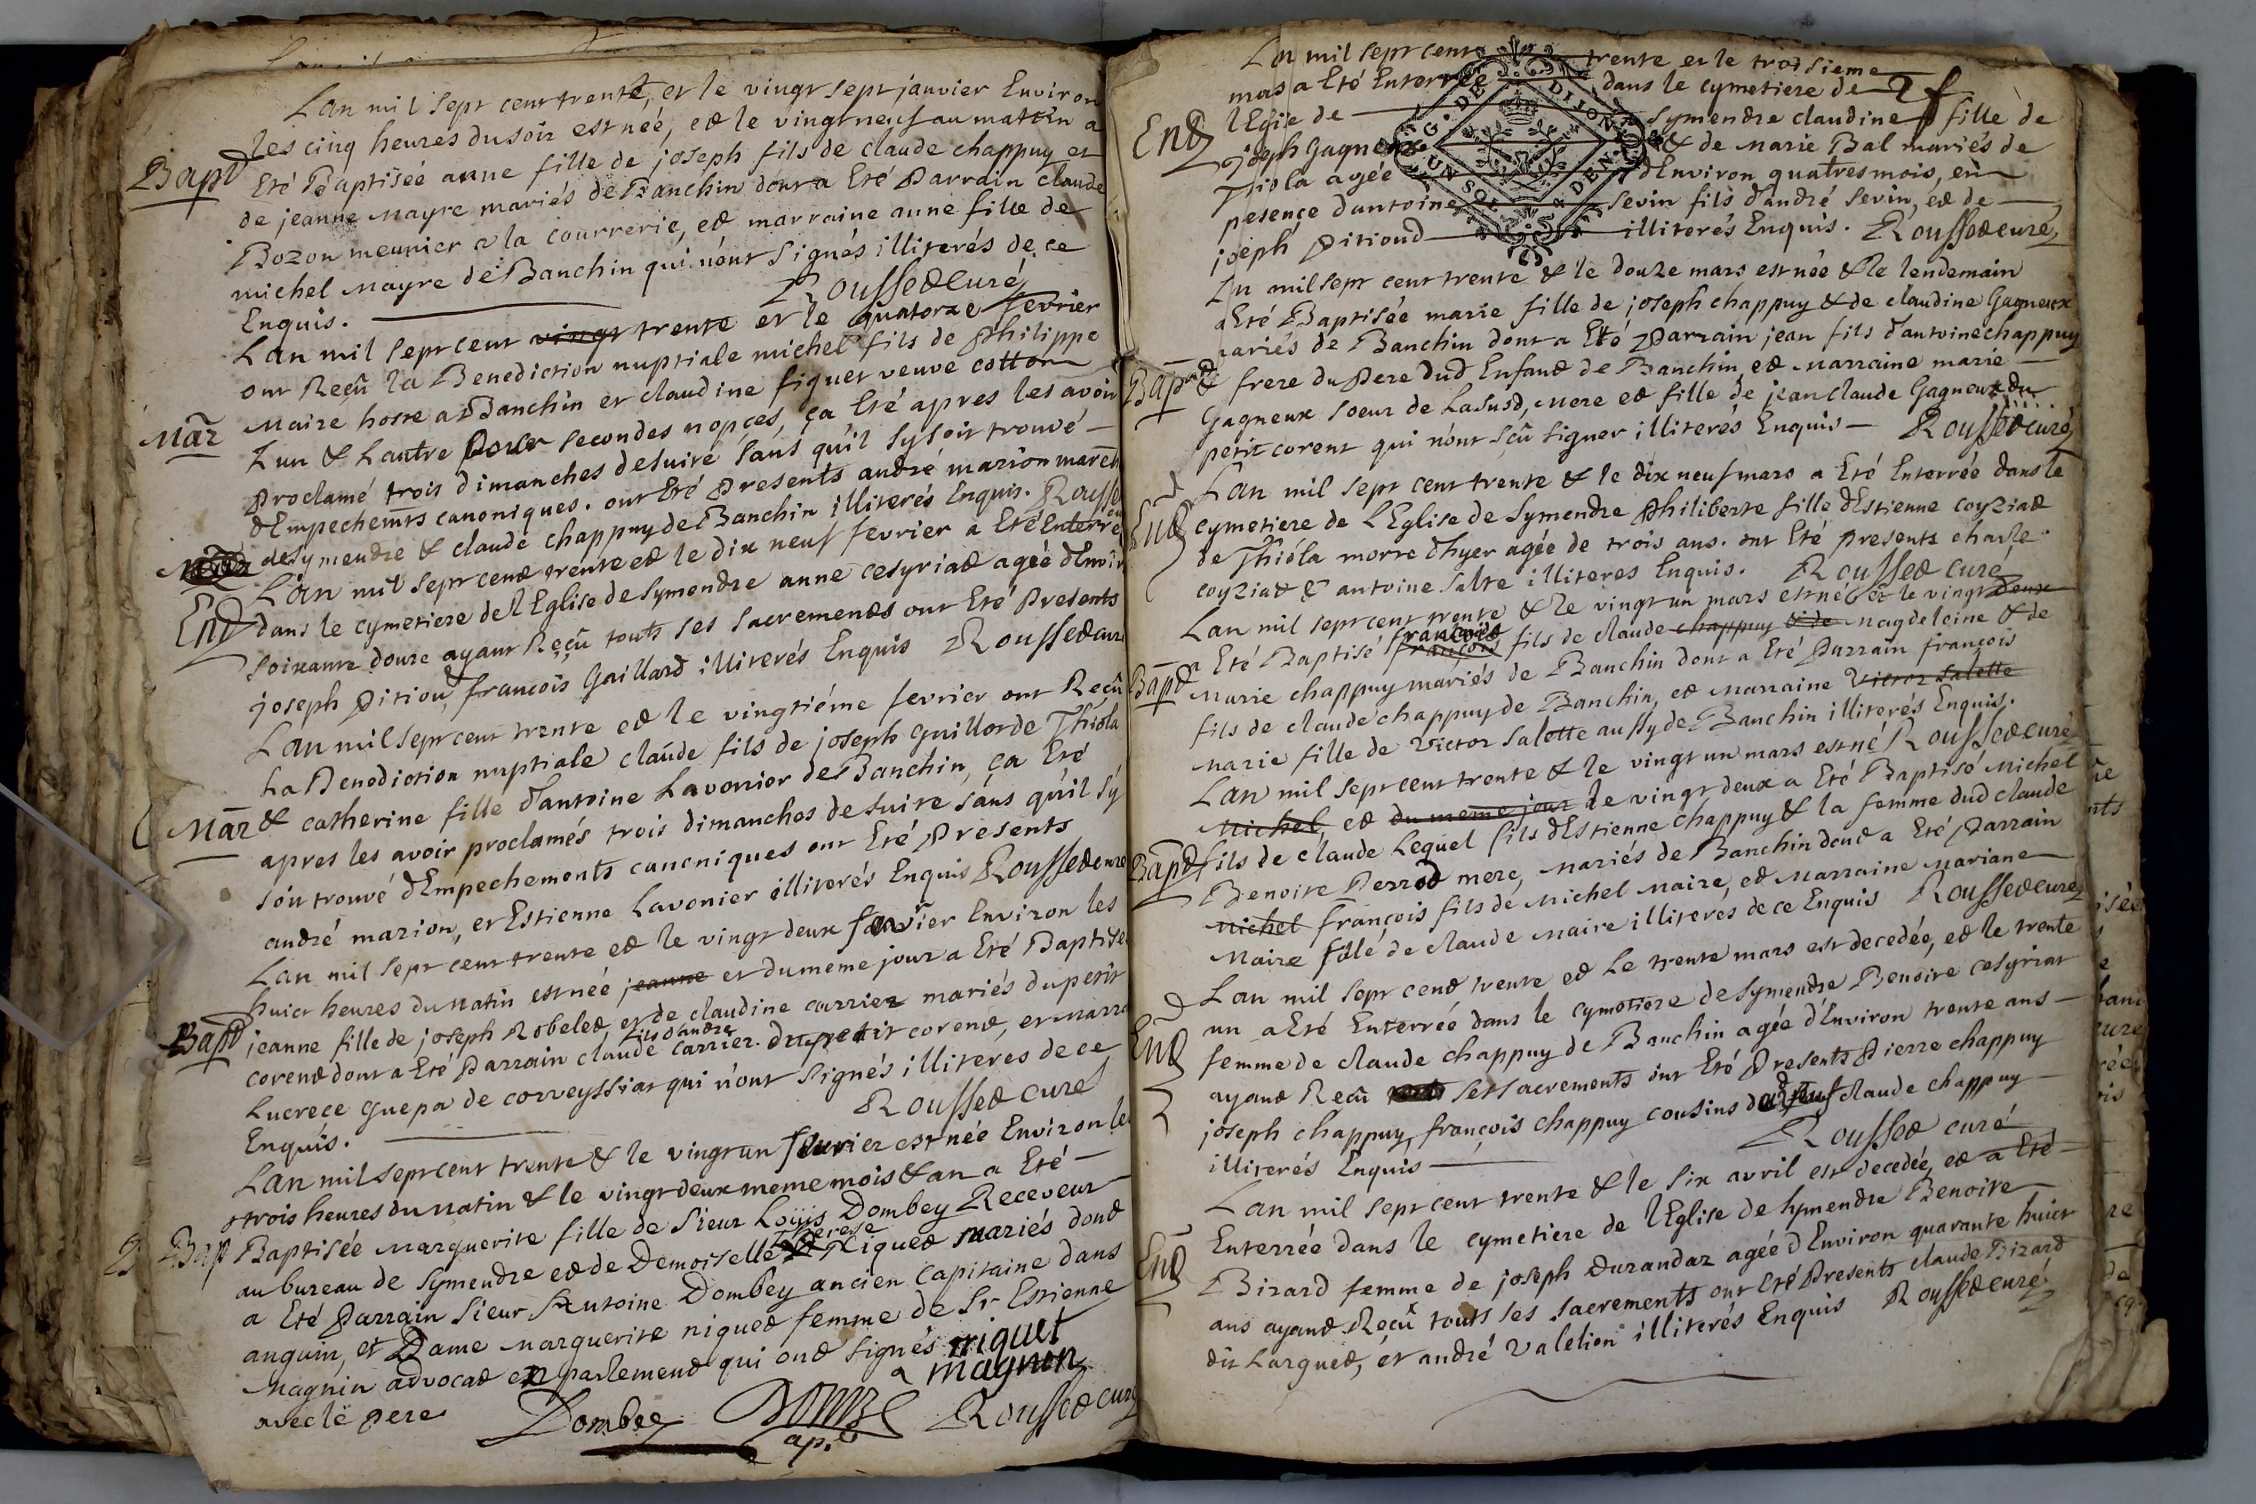 Lan mil sept cent trente, et le vingt sept janvier Environ
les cinq heures du soir est née, et le vingt neuf au mattin a
Bapt
Eté Baptisée anne fille de joseph fils de claude chappuy et
de jeanne Mayre mariés de Banchin dont a Eté Parrain claude
Bozon meunier a la courrerie, et marraine anne fille de
michel Mayre de Banchin qui n'ont signés illiterés de ce
Enquis. Roussed curé
Lan mil sept cent vingt trente et le quatorze fevrier
ont Reçû la Benediction nuptiale michel fils de Philippe
Mar
Maire hoste a Banchin et claudine figuet veuve cotton
Lun & Lautre pour secondes nopces, ça Eté apres les avoir
Proclamé trois dimanches desuite sans qu'il sy soit trouvé
dEmpechemts canoniques. ont Eté Presents andré marion march
de symendre & claude chappuy de Banchin illiterés Enquis. Roussed
Lan mil sept cent trente et le dix neuf fevrier a Eté Enterrée
Ent
dans le cymetiere de lEglise de symendre anne cesyriat agée dEnviro
soixante douze ayant Reçû touts ses sacrements ont Eté Presents
joseph Pitioud, françois Gaillard illiterés Enquis Roussed curé
Lan mil sept cent trente et le vingtiéme fevrier ont Reçû
La Benediction nuptiale claude fils de joseph Guillot de Thiola
Mar
& catherine fille d'antoine Lavonier de Banchin, ça Eté
apres les avoir proclamés trois dimanches de suite sans qu'il sy
soit trouvé dEmpechements canoniques ont Eté Presents
andré marion, et Estienne Lavonier illiterés Enquis Roussed curé
Lan mil sept cent trente et le vingt deux fevrier Environ les
huict heures du Matin est née jeanne et du meme jour a Eté Baptisée
Bapt
jeanne fille de joseph Robelet, et de claudine carrier mariés du petit
fils d'andré
corent dont a Eté Parrain claude carrier du petit corent, et marra
Lucrece guepa de corveyssiat qui n'ont signés illiterés de ce
Enquis. Roussed curé
Lan mil sept cent trente & le vingt un fevrier est née Environ le
trois heures du Matin & le vingt deux meme mois & an a Eté
Bap
Baptisée Marguerite fille de sieur Loüis Dombey Receveur
therese
au bureau de symendre et de Demoiselle Niquet Mariés dont
a Eté Parrain Sieur Antoine Dombey ancien Capitaine dans
anguin, et Dame Marguerite niquet femme de Sr Estienne
Magnin advocat en parlement qui ont signés niquet
avec le pere a magnin
Dombey Roussed curé
Lan mil sept cent trente et le troisieme
mas a Eté Enterrée dans le cymetiere de
Ent
lEglse de symendre claudine fille de
joseph Gagneux & de Marie Bal mariés de
Thiola agée dEnviron quatres mois, en
pesençe d'antoine sevin fils d'andré sevin, et de
joseph Pitioud illiterés Enquis. Roussed curé
G. DE DIJON
UN SOL 4 DEN
Lan mil sept cent trente & le douze mars est née & le lendemain
a Eté Baptisée marie fille de joseph chappuy & de claudine Gagneux
mariés de Banchin dont a Eté Parrain jean fils d'antoine chappuy
Bapt
& frere du Pere dud Enfant de Banchin, et Marraine marie
Gagneux soeur de Lasusd, Mere et fille de jean claude Gagneux du
petit corent qui n'ont scû signer illiterés Enquis Roussed curé
Lan mil sept cent trente & le dix neuf mars a Eté Enterrée dans le
Ent
cymetiere de LEglise de symendre Philiberte fille dEstienne coyziat
de Thióla morte d'hyer agée de trois ans. ont Eté presents charle
coyziat & antoine salte illiteres Enquis. Roussed curé
Lan mil sept cent trente & le vingt un mars est né & le vingt deux
françois
a Eté Baptisé françois fils de claude chappuy & de magdeleine & de
Bapt
Marie chappuy mariés de Banchin dont a Eté Parrain françois
fils de claude chappuy de Banchin, et Marraine Victor salotte
Marie fille de Victor salotte aussy de Banchin illiterés Enquis.
Lan mil sept cent trente & le vingt un mars est né Roussed curé
Michel, et du meme jour le vingt deux a Eté Baptisé Michel
Bapt
fils de claude Lequel fils dEstienne chappuy & la femme dud claude
Benoite Perrod mere, Mariés de Banchin dont a Eté Parrain
Michel françois fils de Michel Maire, et Marraine Mariane
Maire fille de claude Maire illiterés de ce Enquis Roussed curé
Lan mil sept cent trente et Le trente mars est decedée, et le trente
un a Eté Enterrée dans le cymetiere de symendre Benoite cesyriat
Ent
femme de claude chappuy de Banchin agée dEnviron trente ans
ayant Reçû ses sacrements ont Eté Presents Pierre chappuy
joseph chappuy, françois chappuy cousins claude chappuy
illiterés Enquis Roussed curé
Lan mil sept cent trente & le six avril est decedée, et a Eté
Enterrée dans le cymetiere de lEglise de symendre Benoite
Ent
Bizard femme de joseph Durandaz agée dEnviron quarante huict
ans ayant Reçû touts ses sacrements ont Eté Presents claude Bizard
dit Larguet, et andré Valetion illiterés Enquis Roussed curé